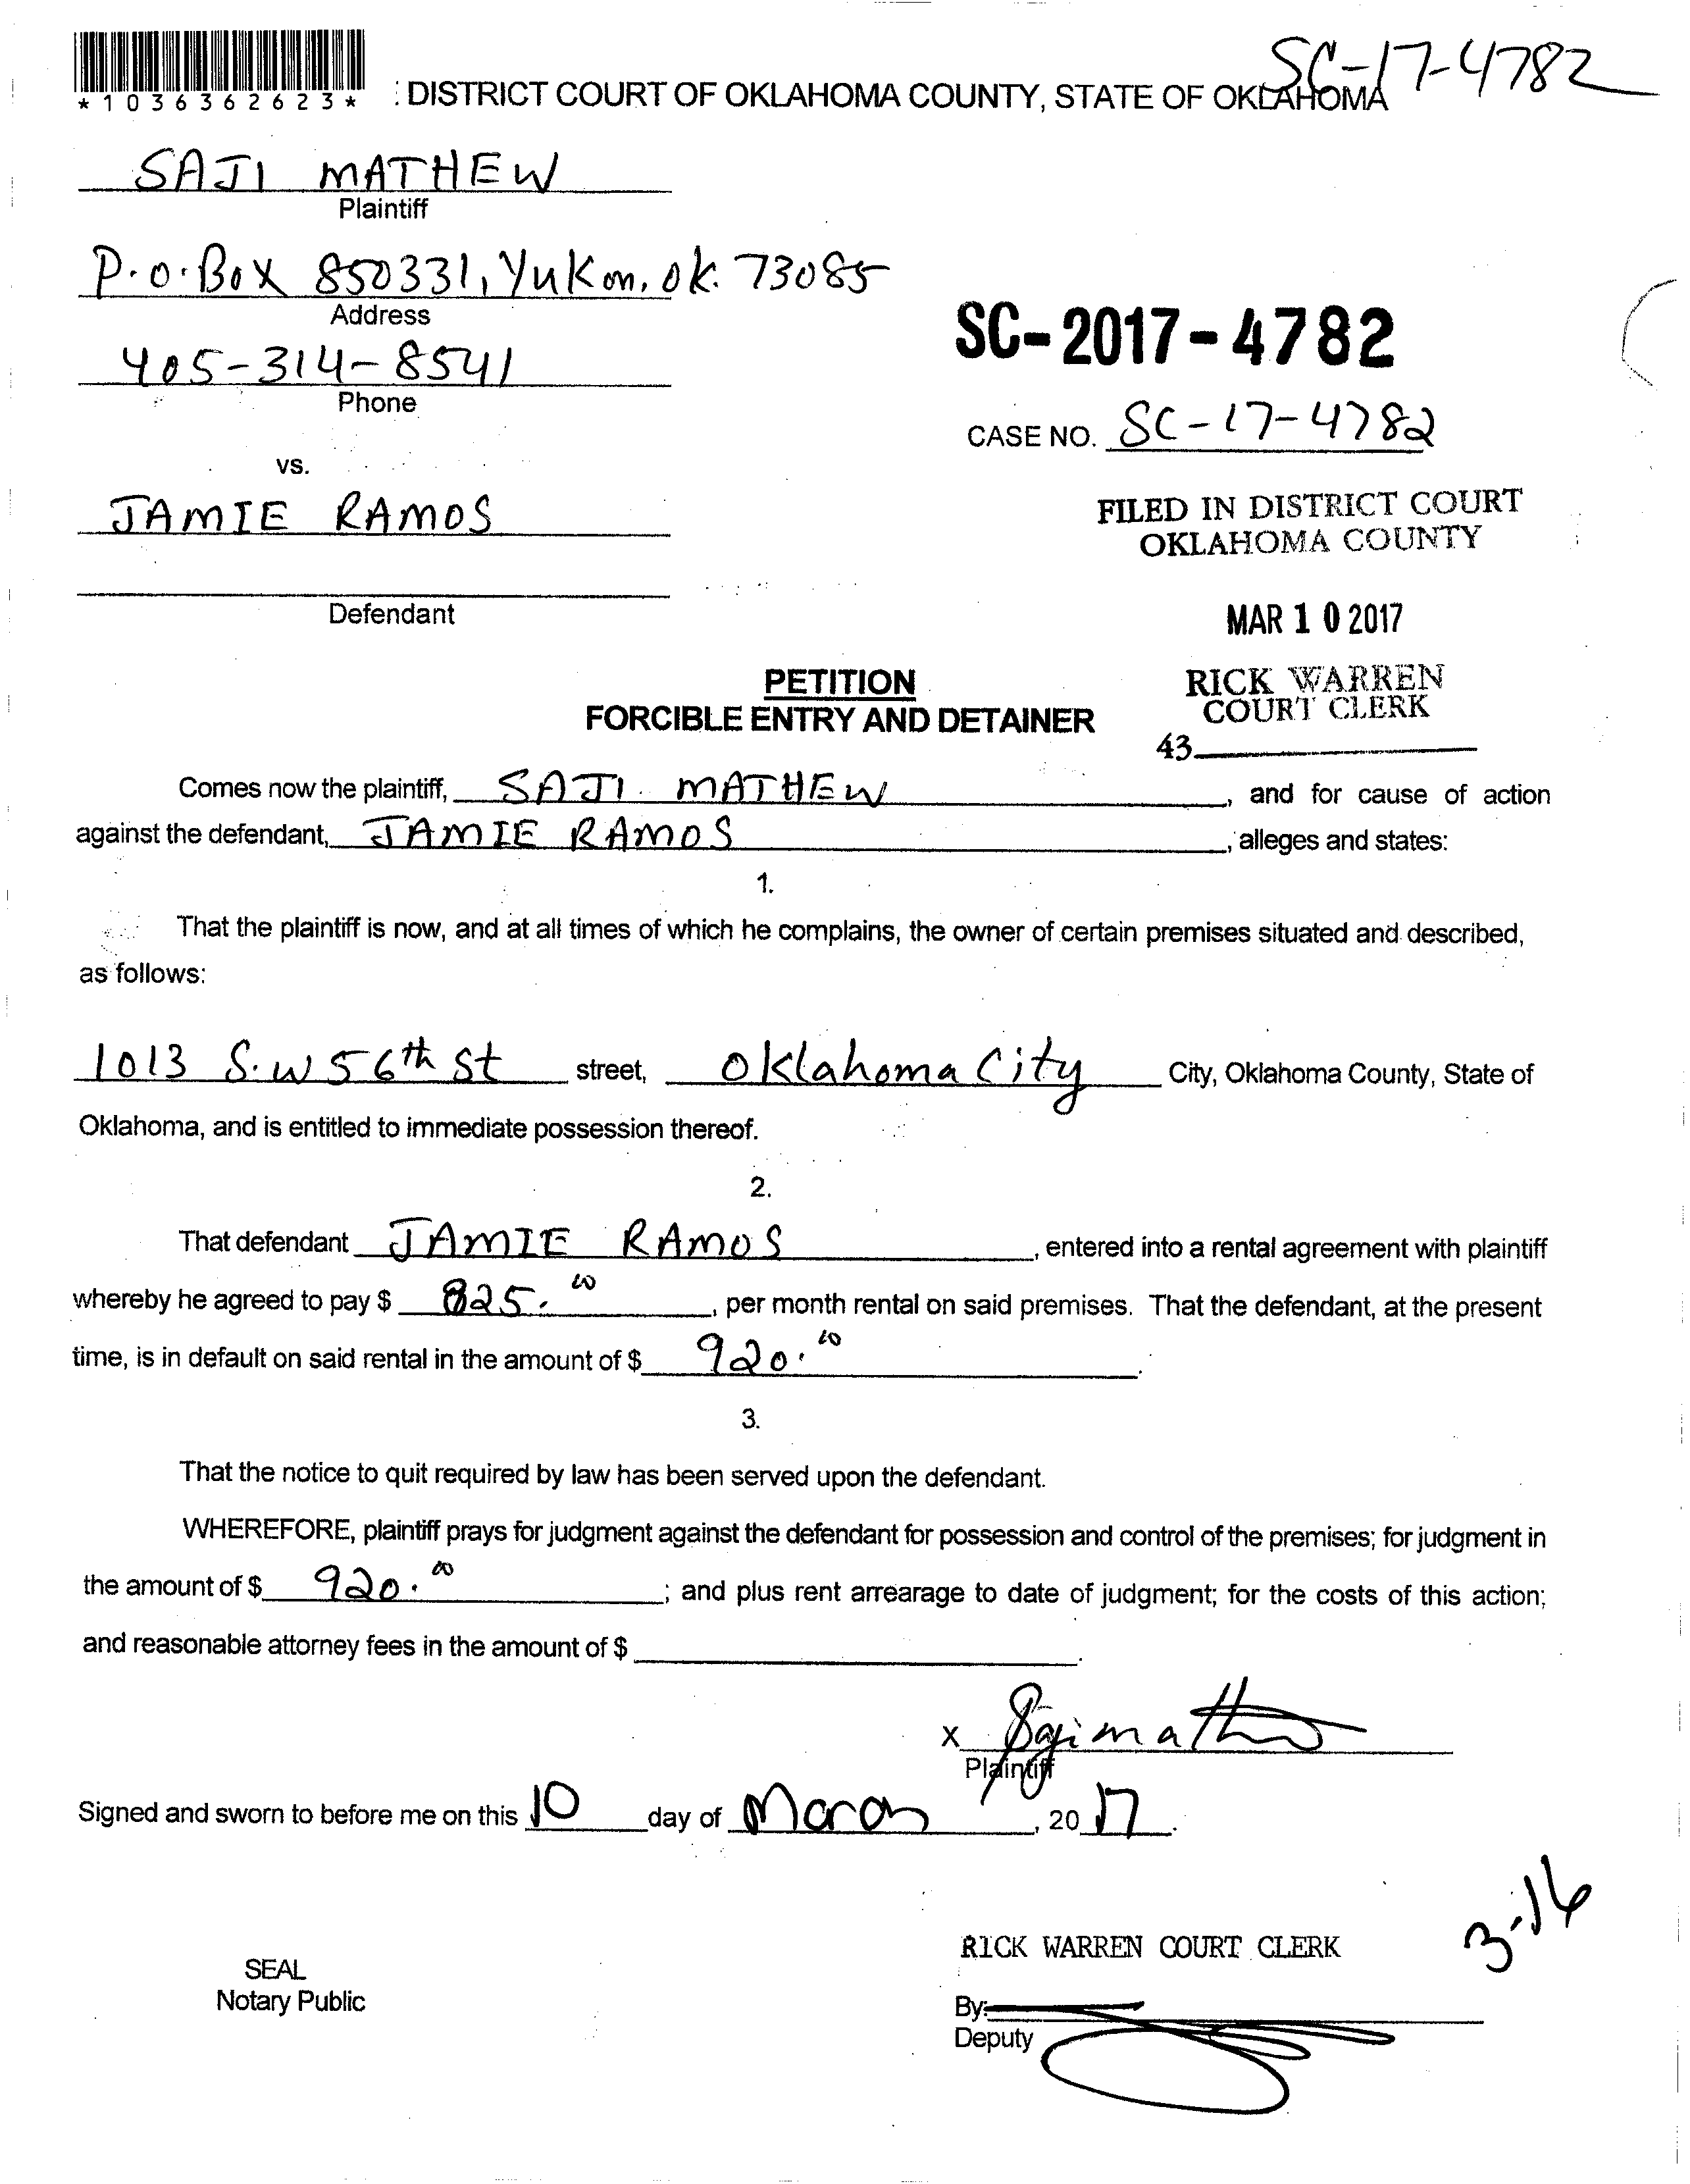 SC-17-4782
*1036362623* : DISTRICT COURT OF OKLAHOMA COUNTY, STATE OF OKLAHOMA
SAJI MATHEW
Plaintiff
P.O.Box 850331, Yukon, ok. 73085
Address
405-314-8541
Phone
SC-2017-4782
CASE NO. SC-17-4782
vs.
JAMIE RAMOS
Defendant
FILED IN DISTRICT COURT
OKLAHOMA COUNTY
MAR 10 2017
RICK WARREN
COURT CLERK
43
PETITION
FORCIBLE ENTRY AND DETAINER
Comes now the plaintiff, SAJI MATHEW, and for cause of action
against the defendant, JAMIE RAMOS, alleges and states:
1.
That the plaintiff is now, and at all times of which he complains, the owner of certain premises situated and described,
as follows:
1013 S.W 56th St street, Oklahoma City City, Oklahoma County, State of
Oklahoma, and is entitled to immediate possession thereof.
2.
That defendant JAMIE RAMOS, entered into a rental agreement with plaintiff
whereby he agreed to pay $ 825.00, per month rental on said premises. That the defendant, at the present
time, is in default on said rental in the amount of $ 920.00.
3.
That the notice to quit required by law has been served upon the defendant.
WHEREFORE, plaintiff prays for judgment against the defendant for possession and control of the premises; for judgment in
the amount of $ 920.00; and plus rent arrearage to date of judgment; for the costs of this action;
and reasonable attorney fees in the amount of $ .
x Saji Mathew
Plaintiff
Signed and sworn to before me on this 10 day of March, 20 17.
3-16
RICK WARREN COURT CLERK
SEAL
Notary Public
By:
Deputy